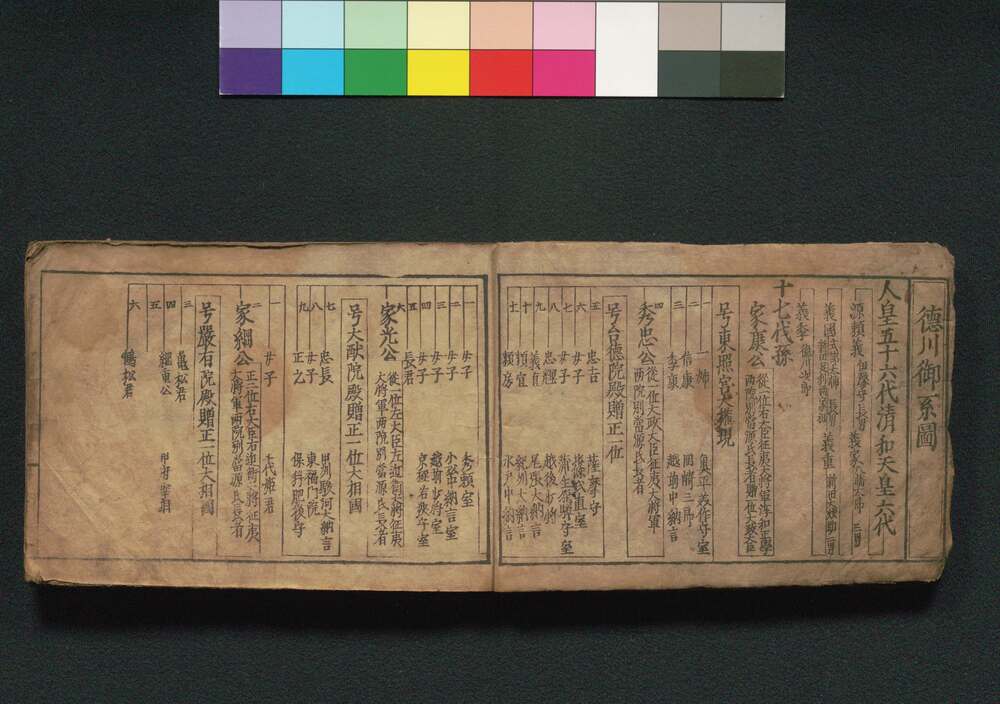 德川御系圖
人皇五十六代清和天皇六代
源頼義 伊豫守 長男 義家
義國 義重
義季
十七代孫
家康公 從一位右大臣征夷大将軍淳和奨學
両院別當源氏長者贈正一位大政大臣
号東照宮大權現
一 姉 奥平美作守室
二 信康 岡崎三郎
三 季康 越前中納言
四 秀忠公 從一位大政大臣征夷大将軍
両院別當源氏長者
号台德院殿贈正一位
五 忠吉 薩摩守
六 女子
七 女子 蒲生飛騨守室
八 忠輝 越後少将
九 義直 尾張大納言
十 頼宣 紀州大納言
十一 頼房 水戸中納言
一 女子 秀頼室
二 女子 小松中納言室
三 女子 越前少将室
四 女子 京極若狭守室
五 長君
六 家光公 從一位左大臣左近衛大将征夷
大将軍両院別當源氏長者
号大猷院殿贈正一位大相國
七 忠長 甲州駿河大納言
八 女子 東福門院
九 正之 保科肥後守
一 女子 千代姫君
二 家綱公 正二位右大臣右近衛大将征夷
大将軍両院別當源氏長者
号嚴有院殿贈正一位大相國
三 亀松君
四 綱重公 甲府宰相
五
六 鶴松君